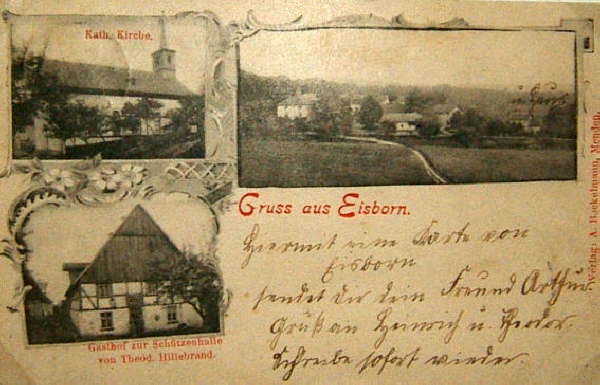 Kath. Kirche.
Gruss aus Eisborn.
Hiermit eine Karte von
Eisborn
sendet dir dein Freund Arthur
Gruß an Heinrich u. Theodor.
Schreibe sofort wieder.
Gasthof zur Schützenhalle
von Theod. Hillebrand.
Verlag: A. Heckelmann, Menden.